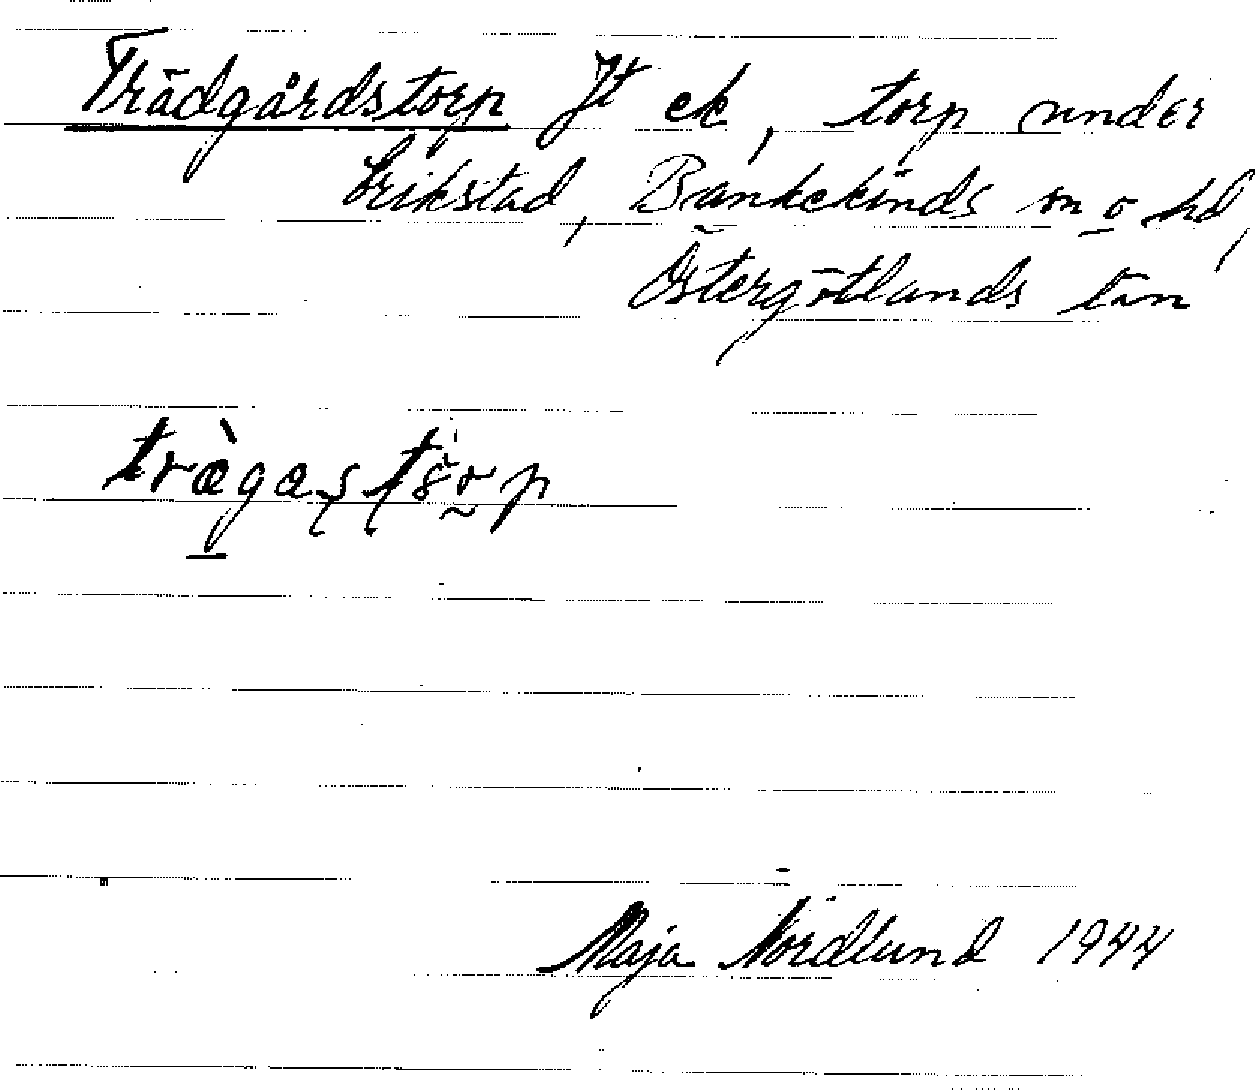 Trädgårdstorp Jt ek, torp under
Erikstad, Bankekinds sn o hd,
Östergötlands län
Maja Nordlund 1944